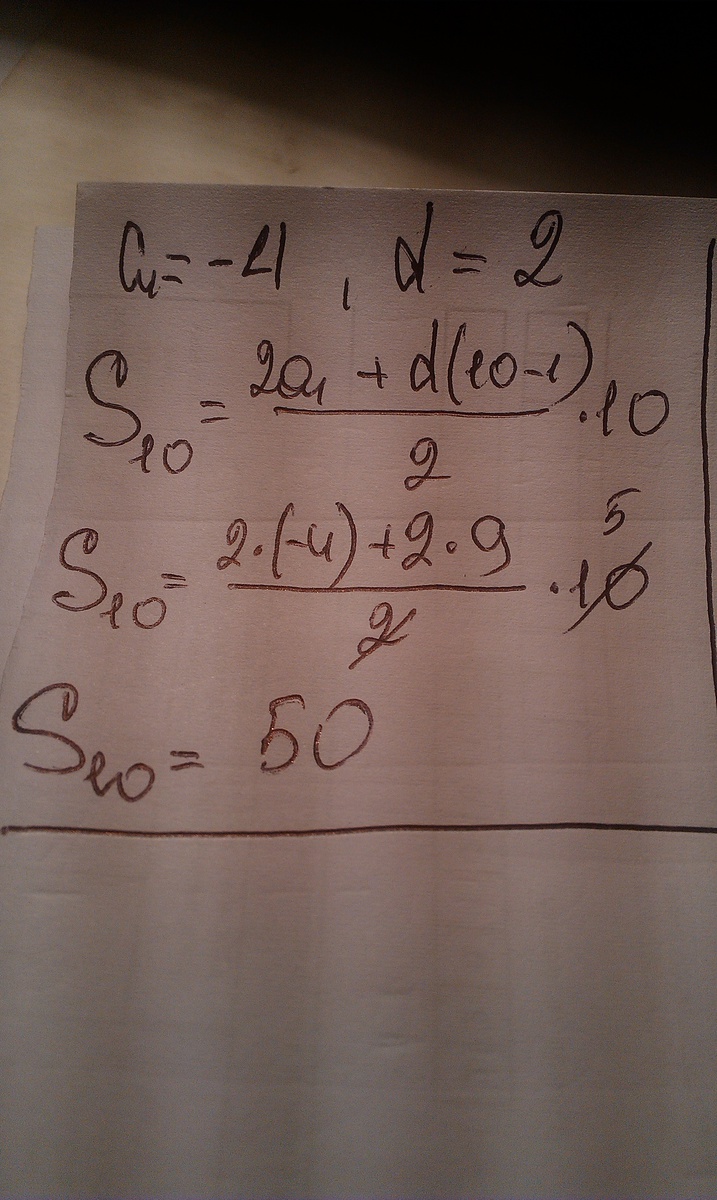 a₁ = -4 , d = 2
S₁₀ = (2a₁ + d(10-1))/2 · 10
S₁₀ = (2·(-4) + 2·9)/2 · 10 5
S₁₀ = 50